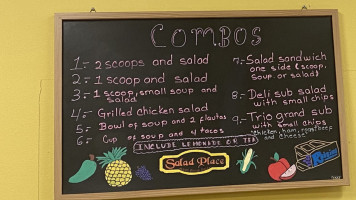 COMBOS
1.- 2 scoops and salad
2.- 1 scoop and salad
3.- 1 scoop, small soup and
salad
4.- Grilled chicken salad
5.- Bowl of soup and 2 flautas
6.- Cup of soup and 4 tacos
7.- Salad sandwich
one side (scoop,
soup or salad)
8.- Deli sub salad
with small chips
9.- Trio grand sub
with small chips
"chicken, ham, roast beef
and cheese"
INCLUDE LEMONADE OR TEA
Salad Place